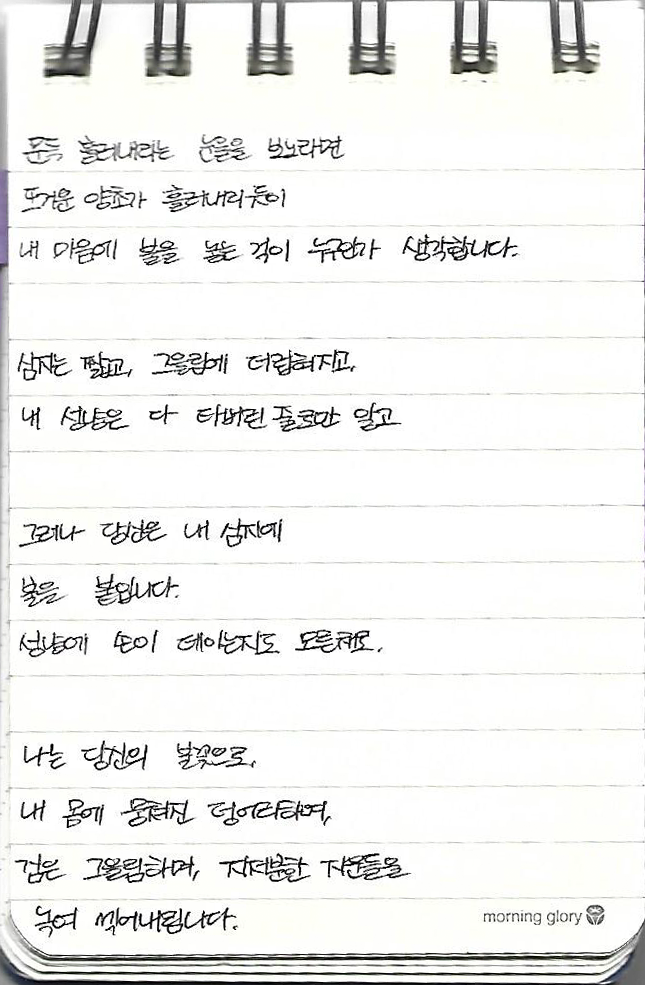 문득 흘러내리는 눈물을 보노라면
뜨거운 양초가 흘러내리듯이
내 마음에 불을 놓는 것이 누구인가 생각합니다.
심지는 짧고, 그을림에 더럽혀지고,
내 성냥은 다 타버린 줄로만 알고
그러나 당신은 내 심지에
불을 붙입니다.
성냥에 손이 데이는지도 모른채로.
나는 당신의 불꽃으로,
내 몸에 뭉쳐진 덩어리하며,
검은 그을림하며, 지저분한 지문들을
녹여 씻어내립니다.
morning glory